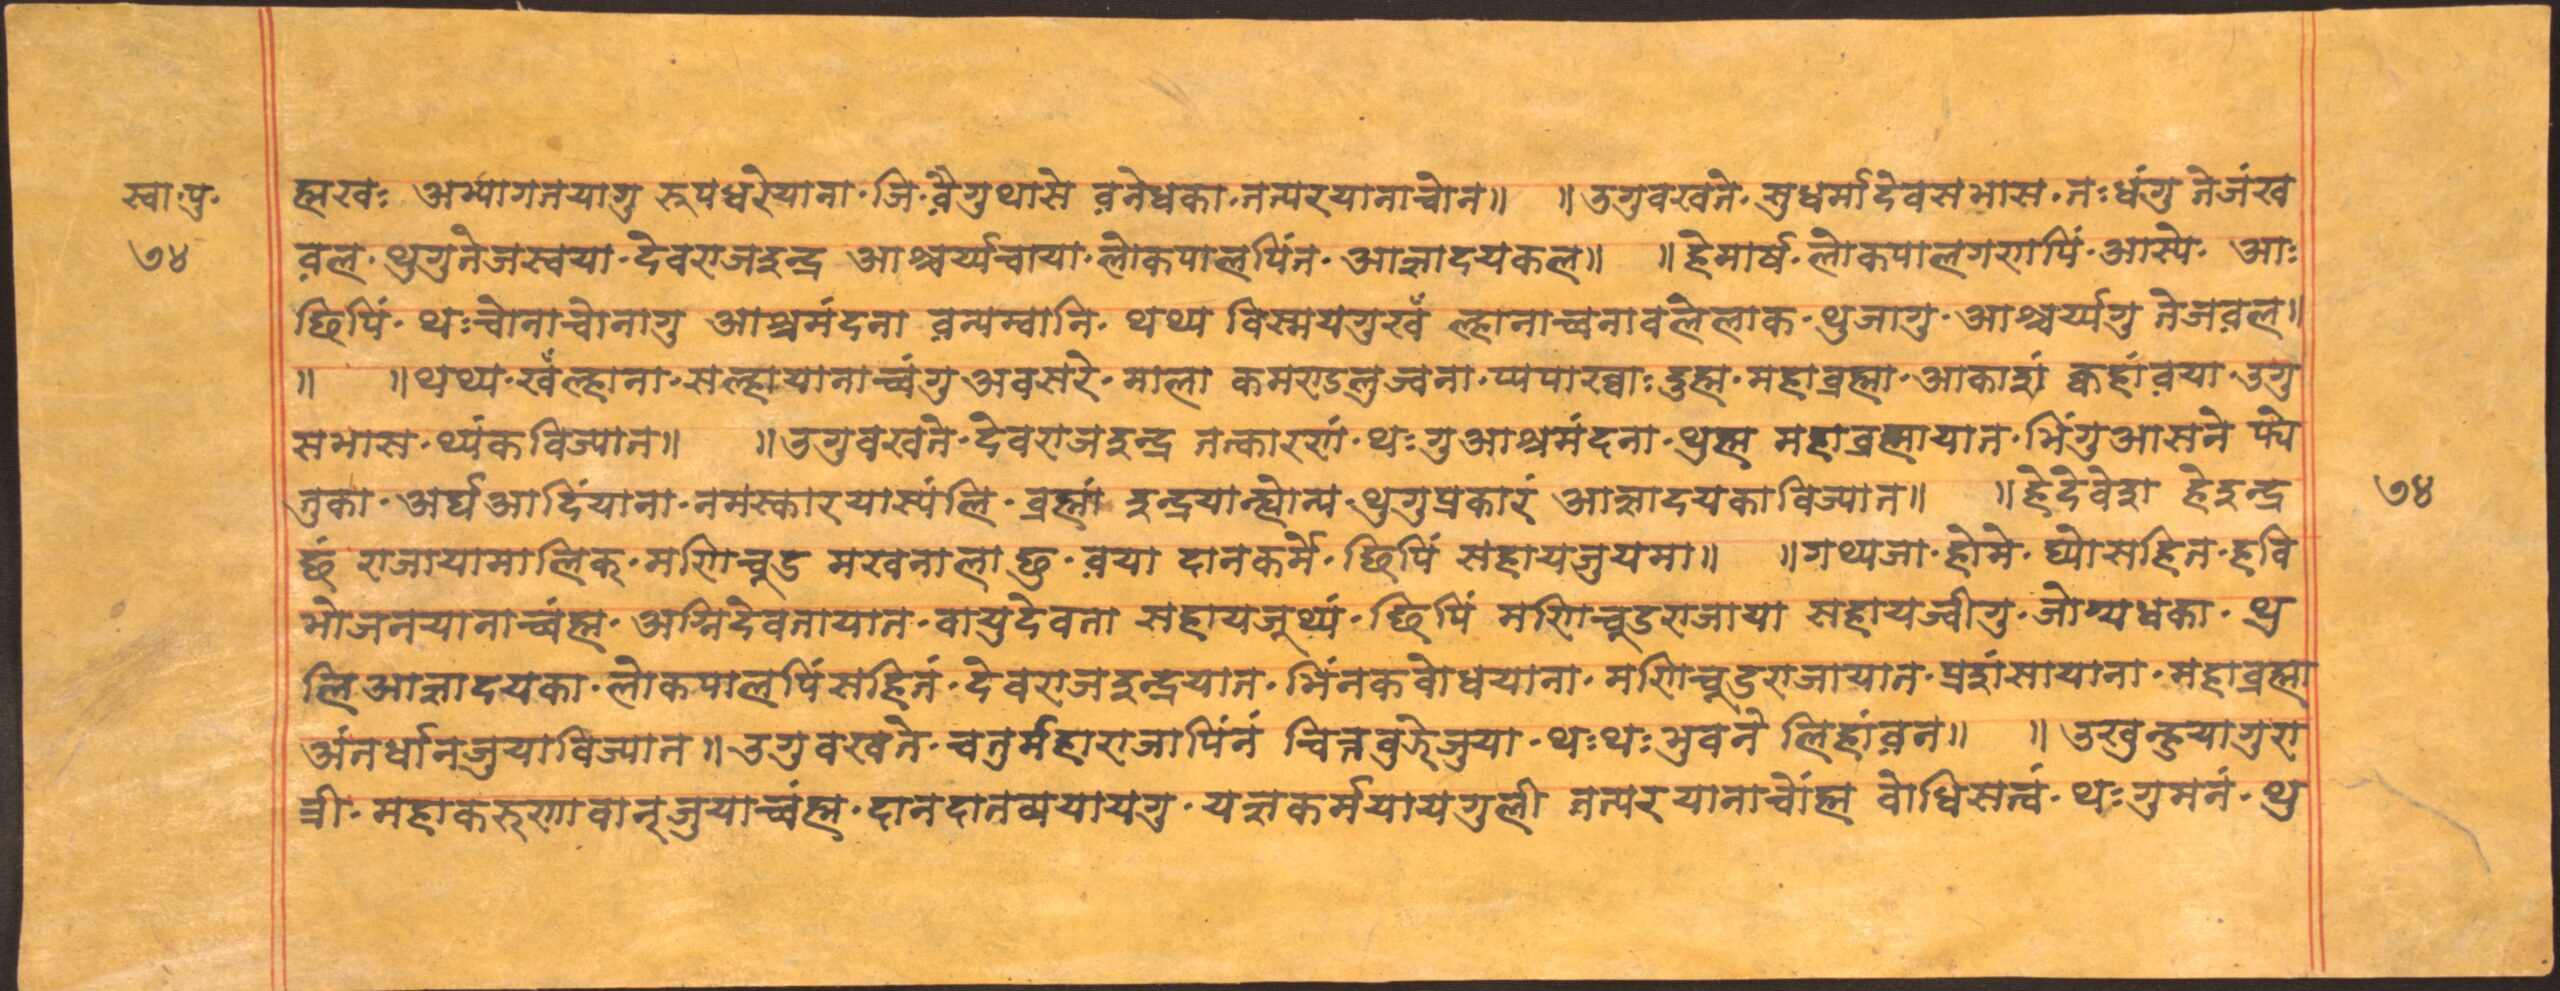 स्वा·पु·
७४
ह्मखः अभ्यागतयागु रूपधरेयाना·जि·व़ैगुथासे व़नेधका·तत्परयानाचोन॥ ॥उगुवखते·सुधर्मादेवसभास·तःधंगु तेजंख
व़ल·थुगुतेजस्वया·देवराजइन्द्र आश्चर्य्यचाया·लोकपालपिंत·आज्ञादयकल॥ ॥हेमार्ष·लोकपालगणपिं·आस्ये· आः
छिपिं·थःचोनाचोनागु आश्चर्मंदना व़न्यम्वानि·थथ्य विस्मयगुखँ ल्हानाच्वनावलेलाक·थुजागु·आश्चर्य्यगु तेजव़ल॥
॥ ॥थथ्य·खँल्हाना·सल्हायानाच्वंगुअवसरे·माला कमण्डलुज्वना·प्यपाख्वाःदुह्म·महाब्रह्मा·आकाशं क्वहांव़या·उगु
सभास·थ्यंकविज्यात॥ ॥उगुवखते·देवराजइन्द्र तत्कारणं·थःगुआश्रमंदना·थुह्म महाब्रह्मायात·भिंगुआसने फ्ये
तुका·अर्घआदिंयाना·नमस्कारयास्यंलि·ब्रह्मां इन्द्रयान्ह्योन्य·थुगुप्रकारं आज्ञादयकाविज्यात॥ ॥हेदेवेश हेइन्द्र
७४
छं राजायामालिक्·मणिचूड मखनाला छु·व़या दानकर्मे·छिपिं सहायजुयमा॥ ॥गथ्यजा·होमे·घ्योसहित·हवि
भोजनयानाच्वंह्म·अग्निदेवतायात·वायुदेवता सहायजूथ्यं·छिपिं मणिचूडराजाया सहायज्वीगु·जोग्यधका·थु
लिआज्ञादयका·लोकपालपिंसहितं·देवराजइन्द्रयात·भिंनकवोधयाना·मणिचूडराजायात·प्रशंसायाना·महाब्रह्मा
अंतर्धानजुयाविज्यात॥उगुवखते·चतुर्महाराजापिंनं चित्तवुझेजुया·थःथःभुवने लिहांव़न॥ ॥उखुन्हुयागुरा
त्री·महाकरुणावान्‌जुयाच्वंह्म·दानदातव्ययायगु·यज्ञकर्मयायगुली तत्परयानाचोंह्म वोधिसत्वं·थःगुमनं·थु